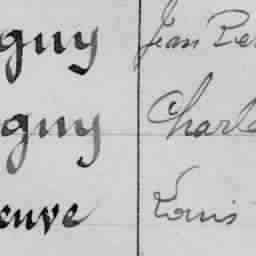 guy Jean
guy Charl
euve Louis